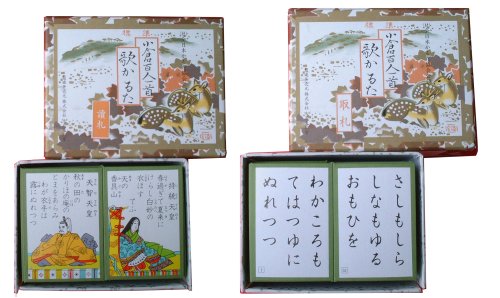 標準
小倉百人一首
歌かるた
読札
持統天皇
春過ぎて夏来に
けらし白妙の
衣ほすてふ
天の
香具山
天智天皇
秋の田の
かりほの庵の
とまをあらみ
わが衣手は
露にぬれつつ
標準
小倉百人一首
歌かるた
取札
さしもしら
しなもゆる
おもひを
わかころも
てはつゆに
ぬれつつ